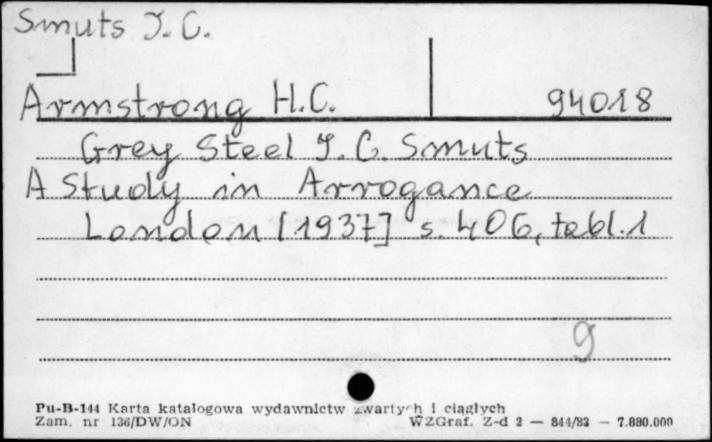 Smuts J. C.
Armstrong H.C. 94018
Grey Steel J. C. Smuts
A Study in Arrogance
London [1937] s. 406, tabl. 1
9
Pu-B-144 Karta katalogowa wydawnictw zwartych i ciągłych
Zam. nr 136/DW/ON WZGraf. Z-d 2 — 844/83 — 7.880.000